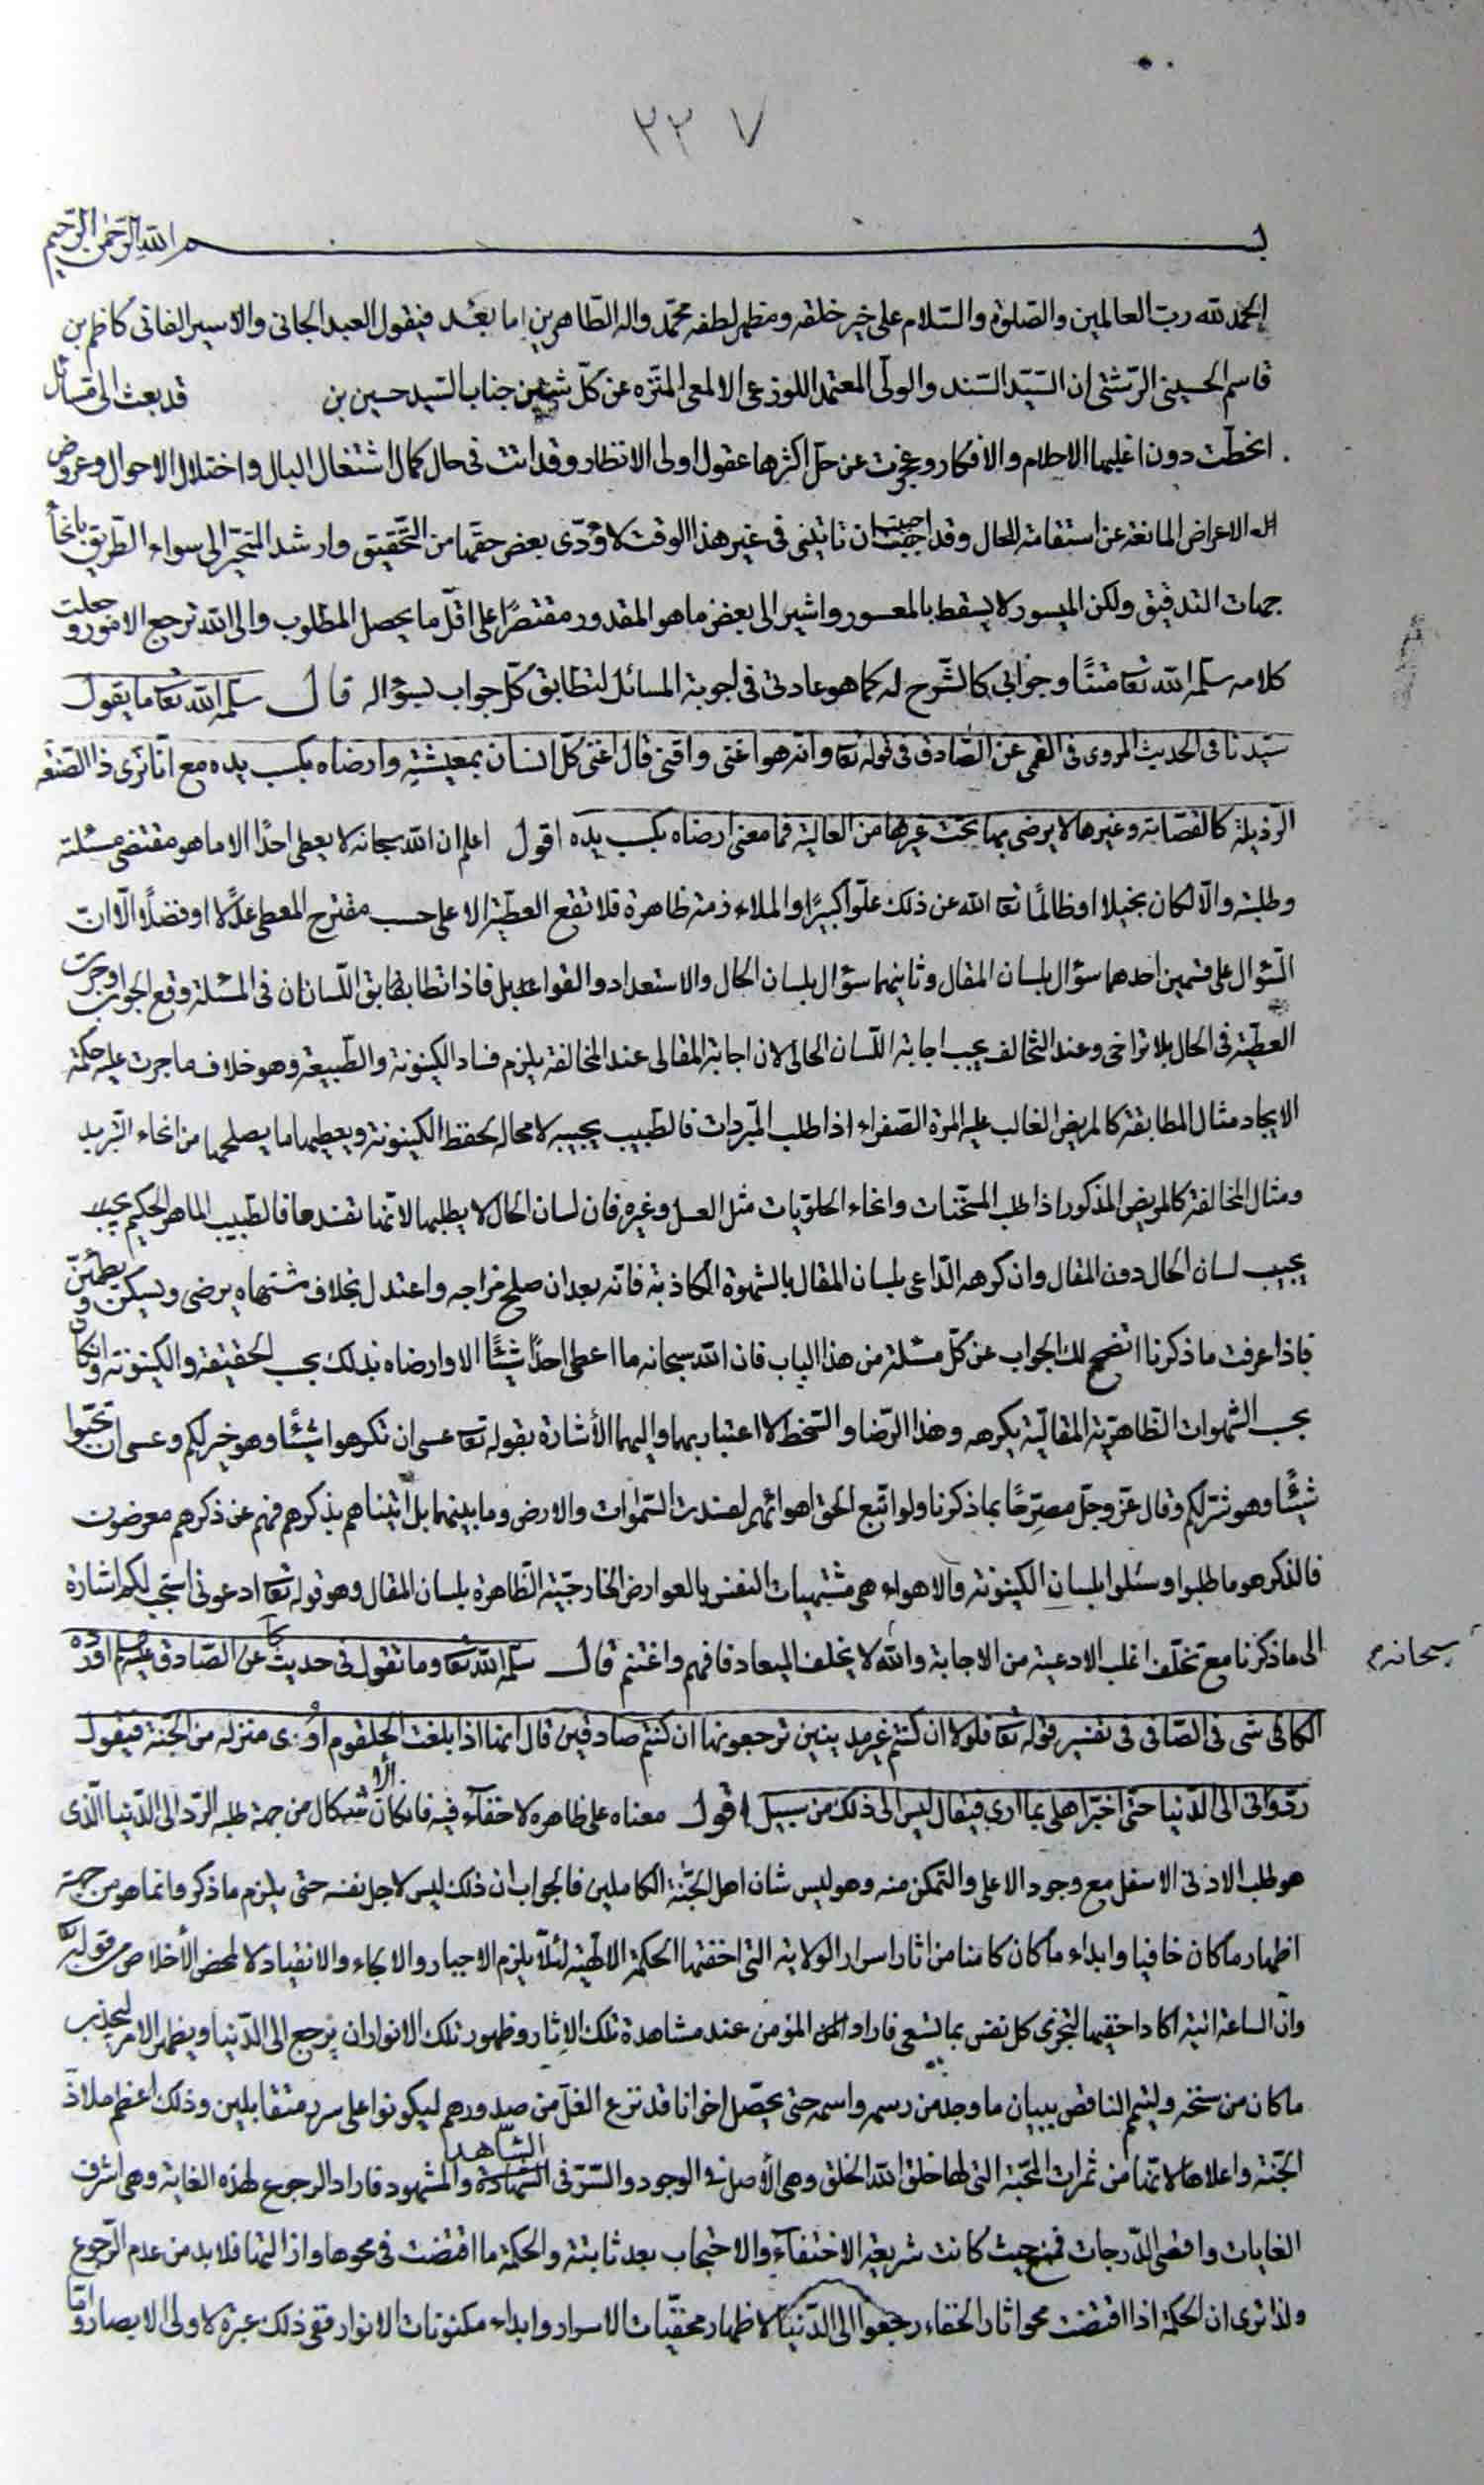 ٣٣٧
بسم الله الرّحمن الرّحيم
الحمد لله ربّ العالمين والصّلوة والسّلام على خير خلقه ومظهر لطفه محمّد واله الطّاهرين اما بعد فيقول العبد الجانى والاسير الفانى كاظم بن
قاسم الحسينى الرّشتى ان السّيّد السّند والمولى المعتمد اللوذعى الالمعى المنزّه عن كلّ شين جناب السّيد حسين بن قد بعث الى بمسائل
انحطّت دون اعليها الاحلام والافكار وعجزت عن حلّ اكثرها عقول اولى الانظار وقد اتت فى حال كمال اشتغال البال واختلال الاحوال وعروض
الاعراض المانعة عن استقامة الحال وقد احببت ان تاتينى فى غير هذا الوقت لاؤدّى بعض حقّها من التّحقيق وارشد المتحيّر الى سواء الطّريق بانحاء
جهات التدقيق ولكن الميسور لا يسقط بالمعسور واشير الى بعض ما هو المقدور مقتصرًا على اقلّ ما يحصل المطلوب والى الله ترجع الامور وجعلت
كلامه سلّمه الله تعا متنًا وجوابى كالشّرح له كما هو عادتى فى اجوبة المسائل لتطابق كلّ جواب لسؤاله قال سلّمه الله تعا ما يقول
سيّدنا فى الحديث المروى فى القمى عن الصّادق فى قوله تعا وانّه هو اغنى واقنى قال اغنى كلّ انسان بمعيشته وارضاه بكسب يده مع انّا نرى ذا الصّنعة
الرّذيلة كالقصّابة وغيرها لا يرضى بها تحت غيرها من العالية فما معنى ارضاه بكسب يده اقول اعلم ان الله سبحانه لا يعطى احدًا الا ما هو مقتضى مسئلته
وطلبته والّا لكان بخيلا او ظالمًا تعا الله عن ذلك علوّا كبيرًا والملازمة ظاهرة فلا تقع العطيّة الا على حسب مقترح المعطى عدلًا او فضلًا الّا انّ
السّؤال على قسمين احدهما سؤال بلسان المقال وثانيهما سؤال بلسان الحال والاستعداد والقوابل فاذا تطابق اللّسانان فى المسئلة وقع الجواب وجرت
العطيّة فى الحال بلا تراخى وعند التّخالف يجب اجابة اللّسان الحالى لان اجابة المقالى عند المخالفة يلزم فساد الكينونة والطّبيعة وهو خلاف ما جرت عليه حكمة
الايجاد مثال المطابقة كالمريض الغالب عليه المرة الصّفراء اذا طلب المبرّدات فالطّبيب يجيبه لا محالة لحفظ الكينونة ويعطيها ما يصلحها من انحاء التبريد
ومثال المخالفة كالمريض المذكور اذا طلب المسخّنات وانحاء الحلويّات مثل العسل وغيره فان لسان الحال لا يطلبها لانّها تفسدها فالطّبيب الماهر الحكيم يجيب
يجيب لسان الحال دون المقال وان كرهه الدّاعى بلسان المقال بالشهوة الكاذبة فانّه بعد ان صلح مزاجه واعتدل بخلاف مشتهاه يرضى ويسكن ويطمئنّ
فاذا عرفت ما ذكرنا اتّضح لك الجواب عن كلّ مسئلة من هذا الباب فان الله سبحانه ما اعطى احدًا شيئًا الا وارضاه بذلك بحسب الحقيقة والكينونة وان كان
بحسب الشهوات الظّاهريّة المقاليّة يكرهه وهذا الرّضا والسّخط لا اعتبار بهما واليهما الأشارة بقوله تعا عسى ان تكرهوا شيئًا وهو خير لكم وعسى ان تحبّوا
شيئًا وهو شرّ لكم وقال عزّ وجلّ مصرّحًا بما ذكرنا ولو اتّبع الحقّ اهوائهم لفسدت السّموات والارض وما بينهما بل اتيناهم بذكرهم فهم عن ذكرهم معرضون
فالذكر هو ما طلبوا وسئلوا بلسان الكينونة والاهواء هى مشتهيات النفس بالعوارض الخارجيّة الظّاهرة بلسان المقال وهو قوله تعا ادعونى استجب لكم اشارة
سبحانه
الى ما ذكرنا مع تخلّف اغلب الادعية من الاجابة والله لا يخلف الميعاد فافهم واغتنم قال سلّمه الله تعا وما تقول فى حديث عن الصّادق اورده
الكاشى فى الصّافى فى تفسير قوله تعا فلولا ان كنتم غير مدينين ترجعونها ان كنتم صادقين قال انها اذا بلغت الحلقوم اورى منزله من الجنّة فيقول
ردّونى الى الدّنيا حتى اخبر اهلى بما ارى فيقال ليس الى ذلك من سبيل اقول معناه على ظاهره لا خفآء فيه فان كان الاشكال من جهة طلبه الردّ الى الدّنيا الّذى
هو طلب الادنى الاسفل مع وجود الاعلى والتمكن منه وهو ليس شان اهل الجنّة الكاملين فالجواب ان ذلك ليس لاجل نفسه حتى يلزم ما ذكر وانما هو من جهة
اظهار ما كان خافيا وابداء ما كان كامنا من اثار اسرار الولاية التى اخفتها الحكمة الالهيّة لئلّا يلزم الاجبار والالجاء والانقياد لا لمحض الأخلاص من قوله تعا
وانّ الساعة اتية اكاد اخفيها لتجزى كل نفس بما تسعى فاراد المؤمن عند مشاهدة تلك الاثار وظهور تلك الانوار ان يرجع الى الدّنيا ويظهر الامر ليجذب
ما كان من سنخه وليتمّ الناقص ببيان ما وجد من رسمه واسمه حتى يحصّل اخوانا قد نزع الغلّ من صدورهم ليكونوا على سرر متقابلين وذلك اعظم ملاذّ
الجنّة واعلاها لانّها من ثمرات المحبّة التى لها خلق الله الخلق وهى الأصل فى الوجود والسّرّ فى الشّاهد والمشهود فاراد الرجوع لهذه الغاية وهى اشرف
الغايات واقصى الدّرجات فمن حيث كانت شريعة الاختفآء والاحتجاب بعد ثابتة والحكمة ما اقتضت فى محوها وازالتها فلا بد من عدم الرّجوع
ولذا ترى ان الحكمة اذا اقتضت محو اثار الخفاء رجعوا الى الدّنيا لاظهار مخفيّات الاسرار وابداء مكنونات الانوار ففى ذلك عبرة لاولى الابصار وامّا